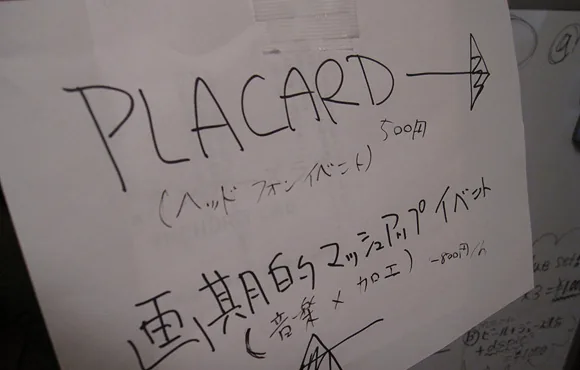 PLACARD
500円
(ヘッドフォンイベント)
画期的マッシュアップイベント
(音楽×加工)